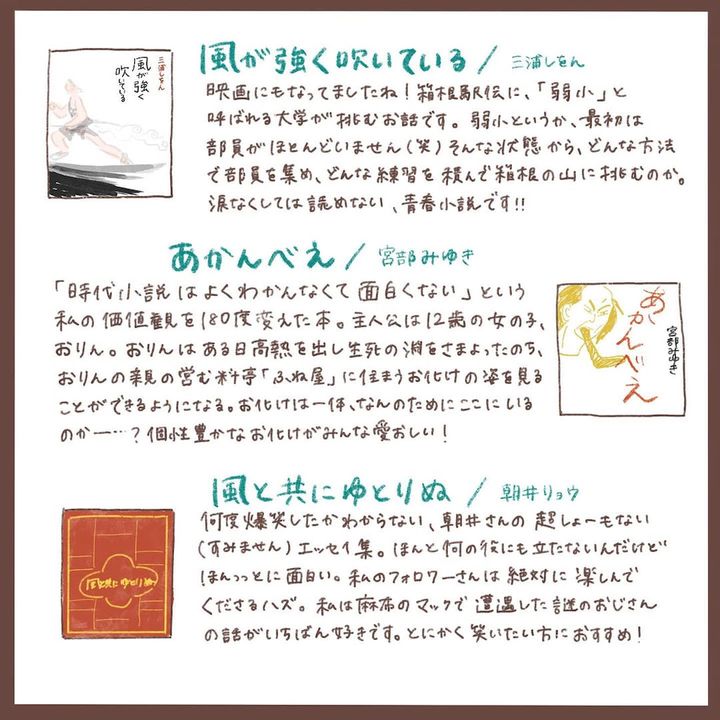 風が強く吹いている / 三浦しをん
三浦しをん
風が強く
吹いている
映画にもなってましたね！箱根駅伝に、「弱小」と
呼ばれる大学が挑むお話です。弱小というか、最初は
部員がほとんどいません(笑)そんな状態から、どんな方法
で部員を集め、どんな練習を積んで箱根の山に挑むのか。
涙なくしては読めない、青春小説です!!
あかんべえ / 宮部みゆき
「時代小説はよくわかんなくて面白くない」という
私の価値観を180度変えた本。主人公は12歳の女の子、
おりん。おりんはある日高熱を出し生死の淵をさまよったのち、
おりんの親の営む料亭「ふね屋」に住まうお化けの姿を見る
ことができるようになる。お化けは一体、なんのためにここにいる
のかー…？個性豊かなお化けがみんな愛おしい！
あかんべえ
宮部みゆき
風と共にゆとりぬ / 朝井リョウ
風と共にゆとりぬ
何度爆笑したかわからない、朝井さんの超しょーもない
(すみません)エッセイ集。ほんと何の役にも立たないんだけど
ほんっっとに面白い。私のフォロワーさんは絶対に楽しんで
くださるハズ。私は麻布のマックで遭遇した謎のおじさん
の話がいちばん好きです。とにかく笑いたい方におすすめ！